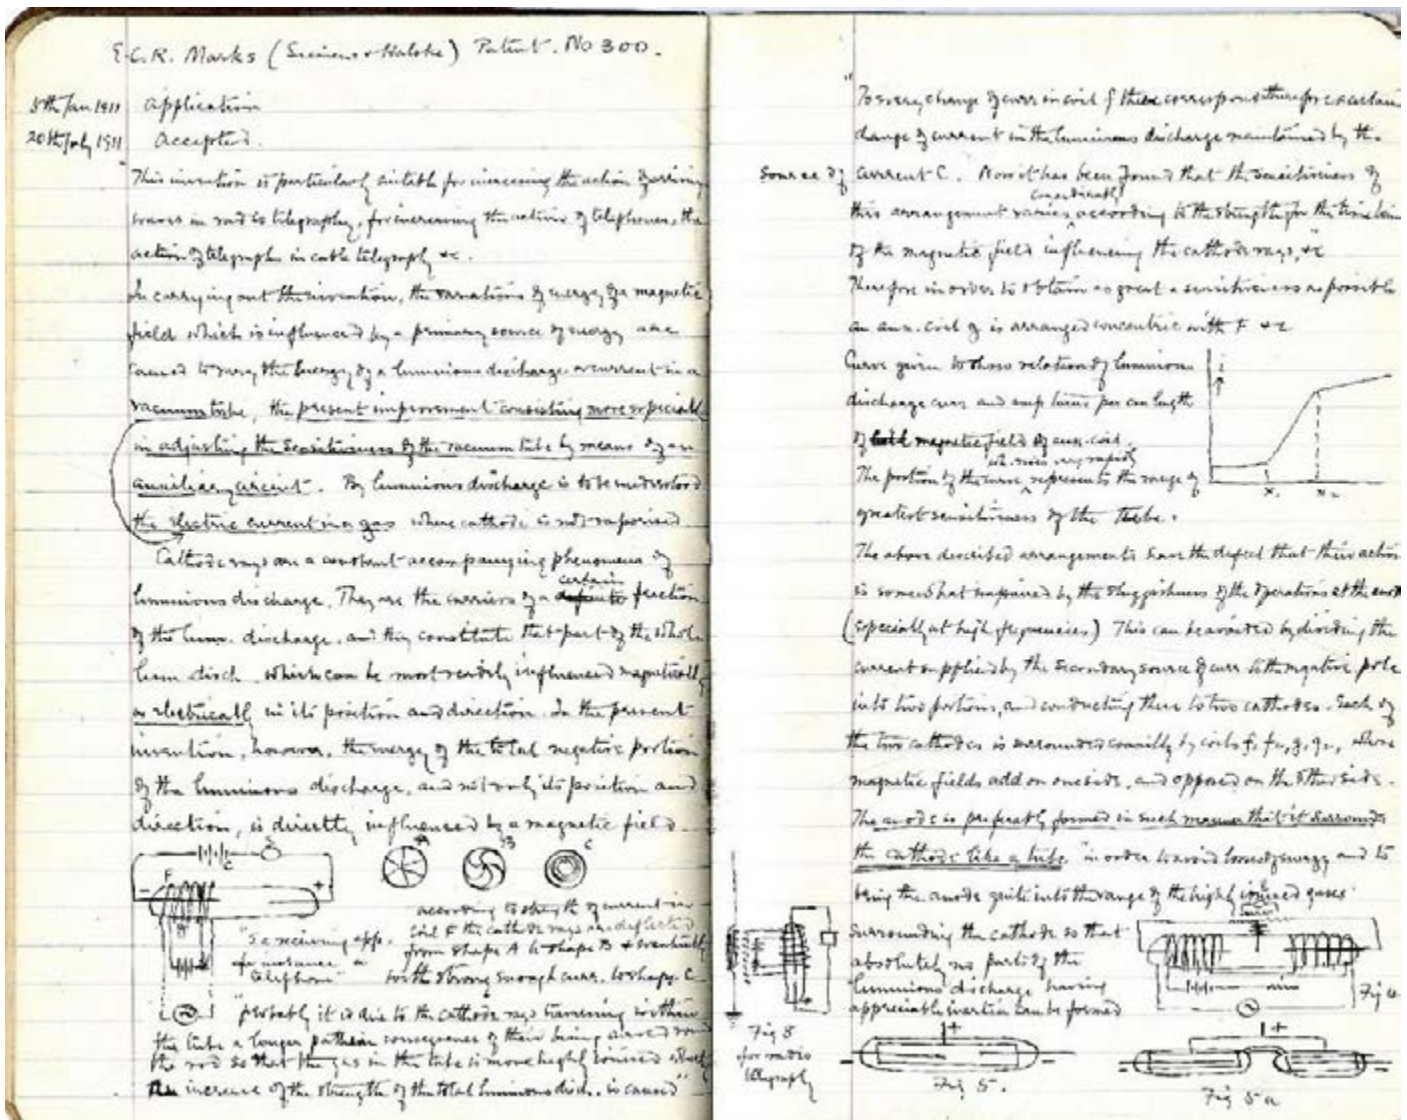 E.C.R. Marks (Siemens & Halske) Patent. No 300.
5th Jan 1911 Application
20th July 1911 Accepted.
"This invention is particularly suitable for increasing the action of arriving
waves in radio telegraphy, for increasing the action of telephones, the
action of telegraphs in cable telegraphy &c.
In carrying out the invention, the variations of energy of a magnetic
field which is influenced by a primary source of energy are
caused to vary the energy of a luminious discharge or current in a
vacuum tube, the present improvement consisting more especially
in adjusting the sensitiveness of the vacuum tube by means of an
auxiliary circuit. By luminious discharge is to be understood
the electric current in a gas where cathode is not vaporised.
Cathode rays are a constant accompanying phenomena of
certain
luminious discharge. They are the carriers of a fraction
of the lum. discharge, and they constitute that part of the whole
lum disch. which can be most readily influenced magnetically
or electrically in its position and direction. In the present
invention, however, the energy of the total negative portion
of the luminious discharge, and not only its position and
direction, is directly influenced by a magnetic field.
C
A B C
F
- +
according to strength of current in
coil F the cathode rays are deflected
from shape A to shape B & eventually
with strong enough curr. to shape C
"S a receiving app.
for instance a
telephone"
"probably it is due to the cathode rays traversing within
the tube a longer path in consequence of their being around
the rod so that the gas in the tube is more highly ionised
increase of the strength of the total luminious disch. is caused"
"To every change of curr in coil f there corresponds therefore a certain
change of current in the luminious discharge maintained by the
source of current C. Now it has been found that the sensitiveness of
considerably
this arrangement varies according to the strength for the time being
of the magnetic field influencing the cathode rays, &c
Therefore in order to obtain as great a sensitiveness as possible
an aux. coil g is arranged concentric with F &c
Curve given to show relation of luminious
discharge curr and amp turns per cm length
of magnetic field of aux. coil.
wh. rises very rapidly
The portion of the curve represents the range of
greatest sensitiveness of the tube.
i
0 x₁ x₂
The above described arrangements have the defect that their action
is somewhat impaired by the sluggishness of the operations at the anode
(especially at high frequencies) This can be avoided by dividing the
current supplied by the secondary source of curr to the negative pole
into two portions, and conducting these to two cathodes. Each of
the two cathodes is surrounded coaxially by coils f, f₁, g, g₁, whose
magnetic fields add on one side, and opposed on the other side.
The anode is preferably formed in such manner that it surrounds
the cathode like a tube, "in order to avoid losses of energy and to
bring the anode quite into the range of the highly ionised gases
surrounding the cathode so that
absolutely no part of the
luminious discharge having
appreciable inertia can be formed
Fig 3
for radio
telegraphy
Fig 4
+
Fig 5.
+
Fig 5a